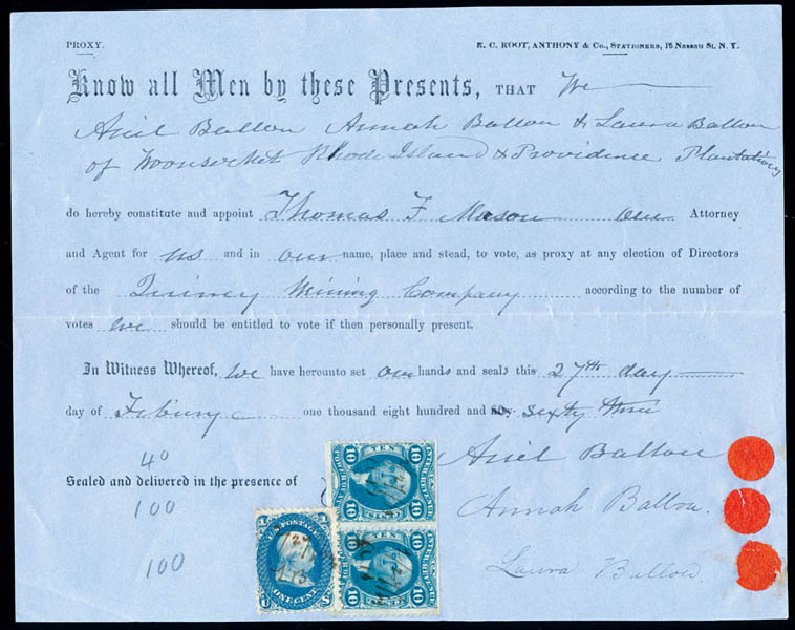 PROXY. E. C. ROOT, ANTHONY & Co., STATIONERS, 16 Nassau St. N. Y.
Know all Men by these Presents, THAT We
Ariel Ballou Annah Ballou & Laura Ballou
of Woonsocket Rhode Island & Providence Plantations
do hereby constitute and appoint Thomas F. Mason our Attorney
and Agent for us and in our name, place and stead, to vote, as proxy at any election of Directors
of the Quincy Mining Company according to the number of
votes we should be entitled to vote if then personally present.
In Witness Whereof, We have hereunto set our hands and seals this 27th day
day of Febury one thousand eight hundred and sixty three
40
Ariel Ballou
Sealed and delivered in the presence of
100
Annah Ballou.
100
Laura Ballou.
TEN
10 10
CENTS
10 10
TEN
10 10
10 10
U.S. POSTAGE
ONE CENT
U S